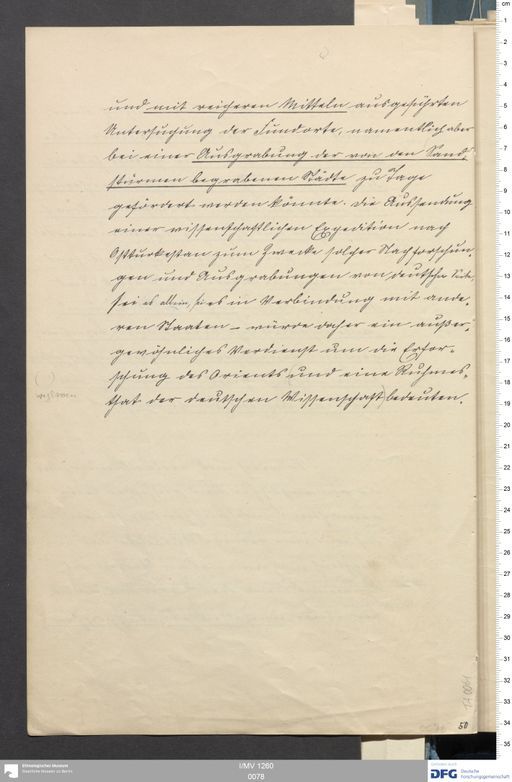 und mit reicheren Mitteln ausgeführten
Untersuchung der Fundorte, namentlich aber
bei einer Ausgrabung der von den Sand-
stürmen begrabenen Städte zu Tage
gefördert werden könnte. Die Aussendung
einer wissenschaftlichen Expedition nach
Ostturkestan zum Zwecke solcher Nachforschun-
gen und Ausgrabungen von deutscher Seite,
sei es allein, sei es in Verbindung mit ande-
ren Staaten – würde daher ein außer-
gewöhnliches Verdienst um die Erfor-
schung des Orients und eine Ruhmes-
that der deutschen Wissenschaft bedeuten.
( )
50
Ethnologisches Museum
Staatliche Museen zu Berlin
I/MV 1260
0078
DFG Deutsche
Forschungsgemeinschaft
cm
1
2
3
4
5
6
7
8
9
10
11
12
13
14
15
16
17
18
19
20
21
22
23
24
25
26
27
28
29
30
31
32
33
34
35